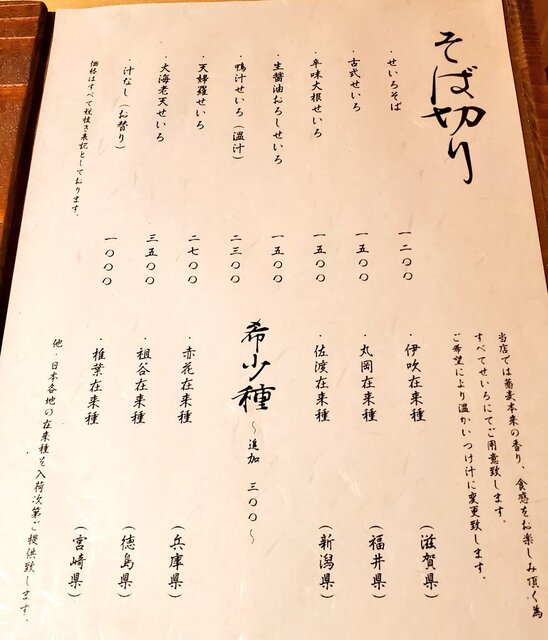 そば切り
・せいろそば 一二〇〇
・古式せいろ 一五〇〇
・辛味大根せいろ 一五〇〇
・生醤油おろしせいろ 一五〇〇
・鴨汁せいろ(温汁) 二三〇〇
・天婦羅せいろ 二七〇〇
・大海老天せいろ 三五〇〇
・汁なし(お替り) 一〇〇〇
価格はすべて税抜き表記としております。
当店では蕎麦本来の香り、食感をお楽しみ頂く為
すべてせいろにてご用意致します。
ご希望により温かいつけ汁に変更致します。
・伊吹在来種 (滋賀県)
・丸岡在来種 (福井県)
・佐渡在来種 (新潟県)
希少種 ~追加 三〇〇~
・赤花在来種 (兵庫県)
・祖谷在来種 (徳島県)
・椎葉在来種 (宮崎県)
他・日本各地の在来種を入荷次第ご提供致します。